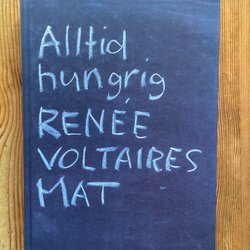 Alltid
hungrig
RENÉE
VOLTAIRES
MAT